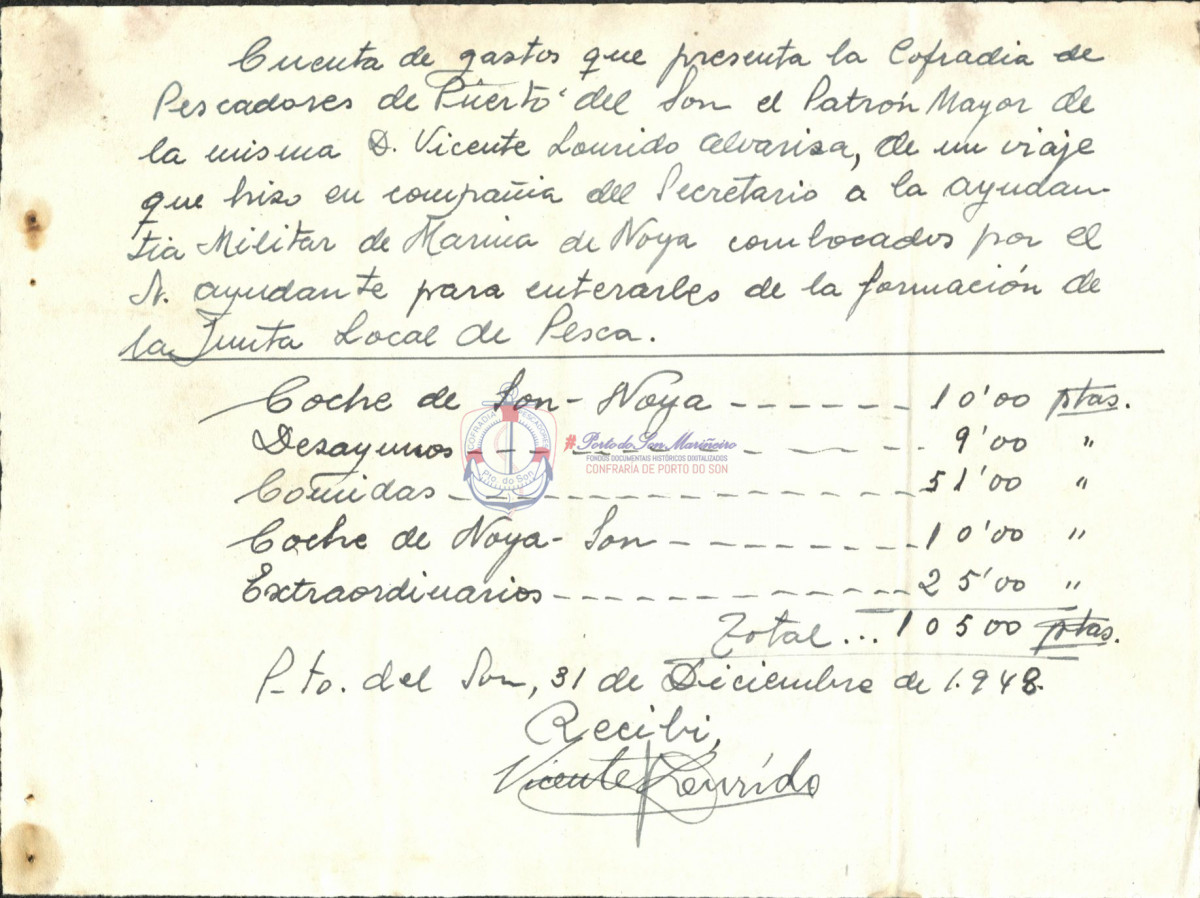 Cuenta de gastos que presenta la Cofradia de
Pescadores de Puerto del Son el Patrón Mayor de
la misma D. Vicente Lourido Alvarisa, de un viaje
que hizo en compañia del Secretario a la ayudan-
tia Militar de Marina de Noya combocados por el
Sr. ayudante para enterarles de la formación de
la Junta Local de Pesca.
Coche de Son-Noya ------- 10'00 ptas.
Desayunos ------- 9'00 "
Comidas ------- 51'00 "
Coche de Noya-Son ------- 10'00 "
Extraordinarios ------- 25'00 "
Total... 10500 ptas.
P-to. del Son, 31 de Diciembre de 1.948.
Recibi,
Vicente Lourido
COFRADIA PESCADORES
Pto. do Son
#Porto do Son Mariñeiro
FONDOS DOCUMENTAIS HISTÓRICOS DIXITALIZADOS
CONFRARÍA DE PORTO DO SON